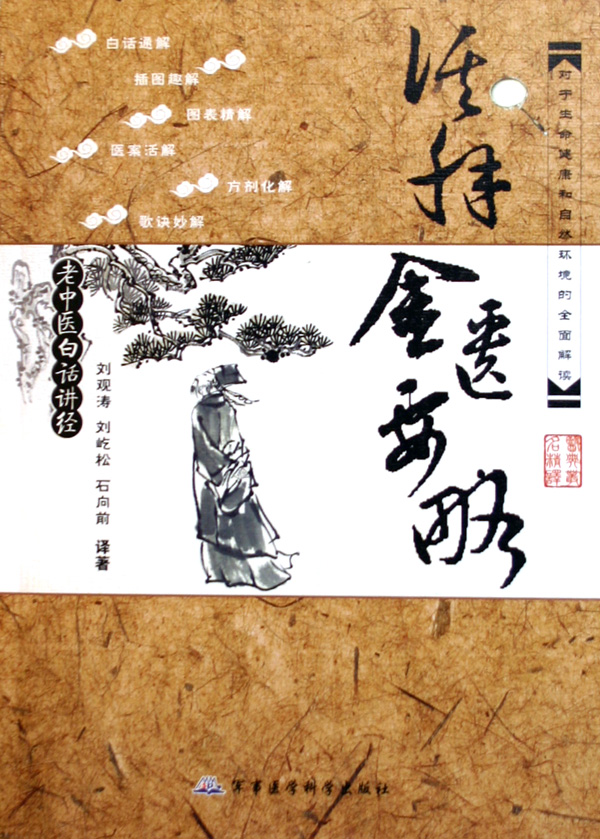 白话通解
插图趣解
图表精解
医案活解
方剂化解
歌诀妙解
对于生命健康和自然环境的全面解读
金匮要略
老中医白话讲经
刘观涛 刘屹松 石向前 译著
军事医学科学出版社